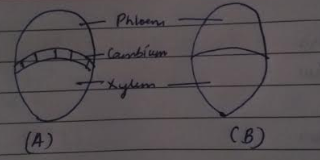 Phloem
Cambium
Xylem
(A) (B)